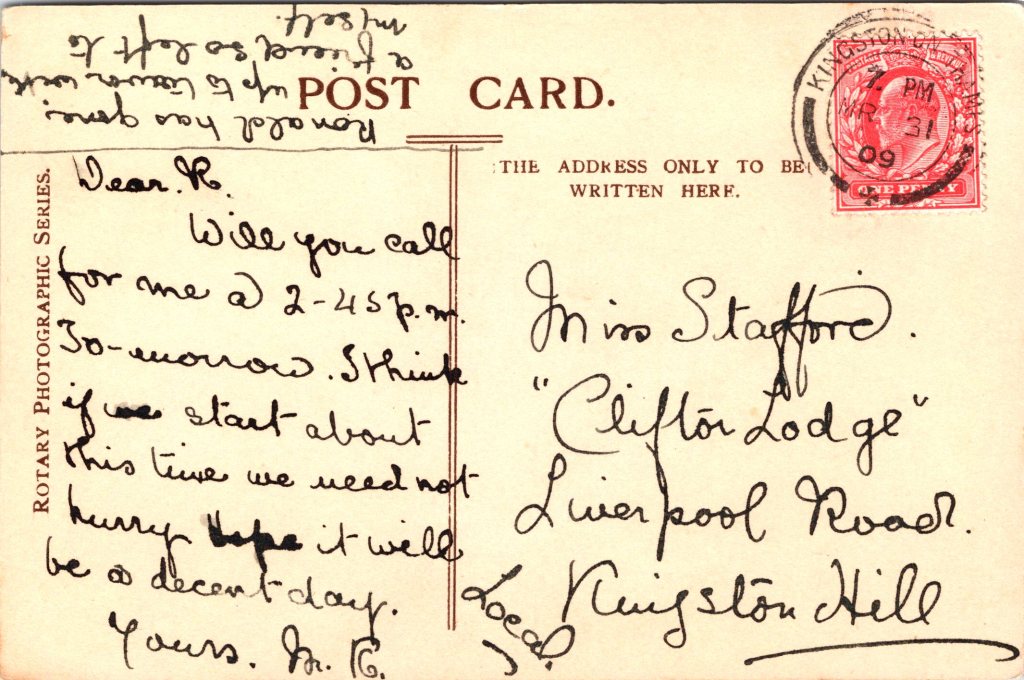 Ronald has gone.
up to town with
a friend so left to
myself.
POST CARD.
THE ADDRESS ONLY TO BE
WRITTEN HERE.
KINGSTON-ON-THAMES
7. PM
MR 31
09
POSTAGE REVENUE
ONE PENNY
ROTARY PHOTOGRAPHIC SERIES.
Dear. R.
Will you call
for me @ 2-45 p.m.
To-morrow. I think
if we start about
this time we need not
hurry hope it will
be a decent day.
Yours. M.
Miss Stafford.
"Clifton Lodge"
Liverpool Road.
Kingston Hill
Local.